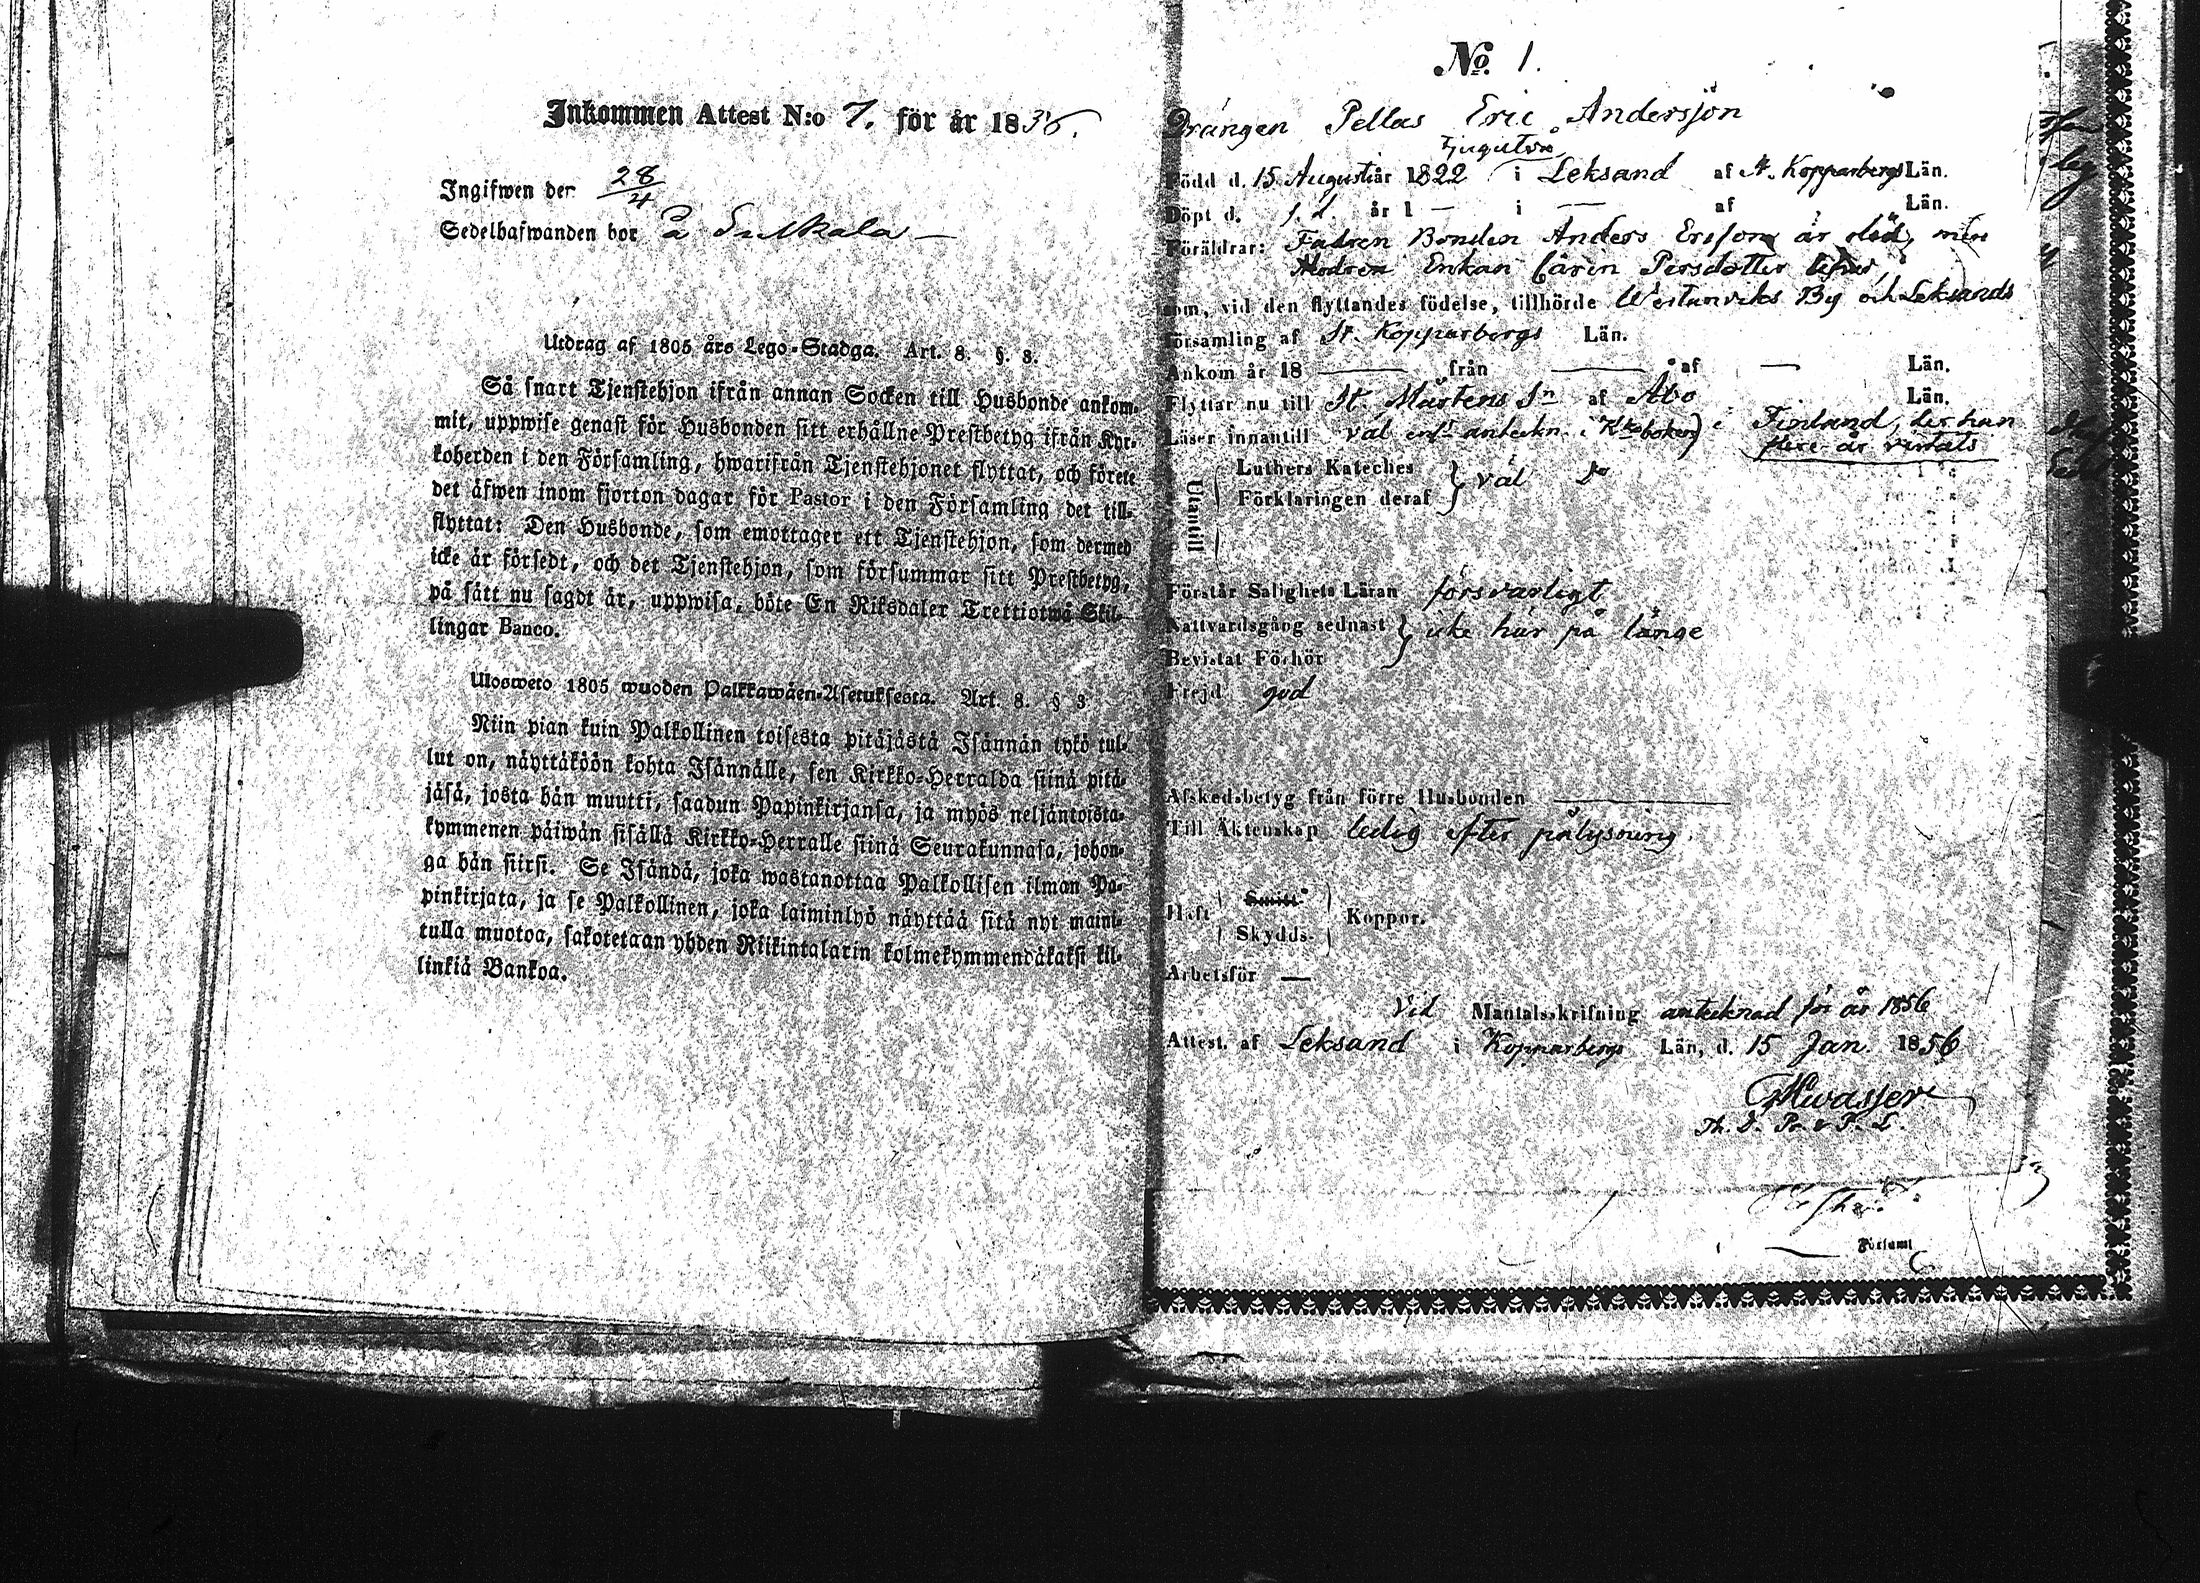 Inkommen Attest N:o 7. för år 1856.
Ingifwen den 28/4
Sedelhafwanden bor På
Utdrag af 1805 års Lego-Stadga. Art. 8. §. 3.
Så snart Tjenstehjon ifrån annan Socken till Husbonde ankom-
mit, uppwise genast för Husbonden sitt erhållne Prestbetyg ifrån Kyr-
koherden i den Församling, hwarifrån Tjenstehjonet flyttat, och förete
det äfwen inom fjorton dagar för Pastor i den Församling det till-
flyttat: Den Husbonde, som emottager ett Tjenstehjon, som dermed
icke är försedt, och det Tjenstehjon, som försummar sitt Prestbetyg,
på sätt nu sagdt är, uppwisa, böte En Riksdaler Trettiotwå Skil-
lingar Banco.
Ulosweto 1805 wuoden Palkkawäen-Asetuksesta. Art. 8. § 3
Niin pian kuin Palkollinen toisesta pitäjästä Isännän tykö tul-
lut on, näyttäköön kohta Isännälle, sen Kirkko-Herralda siinä pitä-
jäsä, josta hän muutti, saadun Papinkirjansa, ja myös neljäntoista-
kymmenen päiwän sisällä Kirkko-Herralle siinä Seurakunnasa, johon-
ga hän siirsi. Se Isändä, joka wastanottaa Palkollisen ilman Pa-
pinkirjata, ja se Palkollinen, joka laiminlyö näyttää sitä nyt maini-
tulla muotoa, sakotetaan yhden Riikintalarin kolmekymmendäkaksi kil-
linkiä Bankoa.
No. 1.
Drängen Pellas Eric Andersson
Född d. 15 Augusti år 1822 i Leksand af St. Kopparbergs Län.
Döpt d. år 1 — i — af Län.
Föräldrar: Fadren Bonden Anders Ersson är död, men
Modren Enkan Carin Persdotter lefver,
som, vid den flyttandes födelse, tillhörde Westanviks By och Leksands
Församling af St. Kopparbergs Län.
Ankom år 18 — från — af — Län.
Flyttar nu till St. Mårtens Sn af Åbo Län.
i Finland, der han
flere år vistats
Läser innantill väl enl. anteckn. i Kkoboken
Utantill
Luthers Kateches
Förklaringen deraf
väl do
Förstår Salighets Läran försvarligt
Nattvardsgång sednast
Bevistat Förhör
icke här på länge
Frejd god
Afskedsbetyg från förre Husbonden —
Till Äktenskap ledig efter pålysning.
Haft
Smitt-
Skydds-
Koppor.
Arbetsför —
Vid Mantalsskrifning antecknad för år 1856
Attest. af Leksand i Kopparbergs Län, d. 15 Jan. 1856
Hwasser
Församl